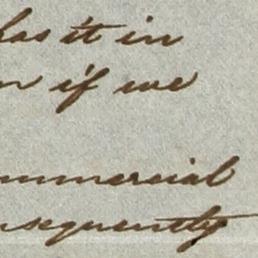 has it in
if we
mmercial
nsequently